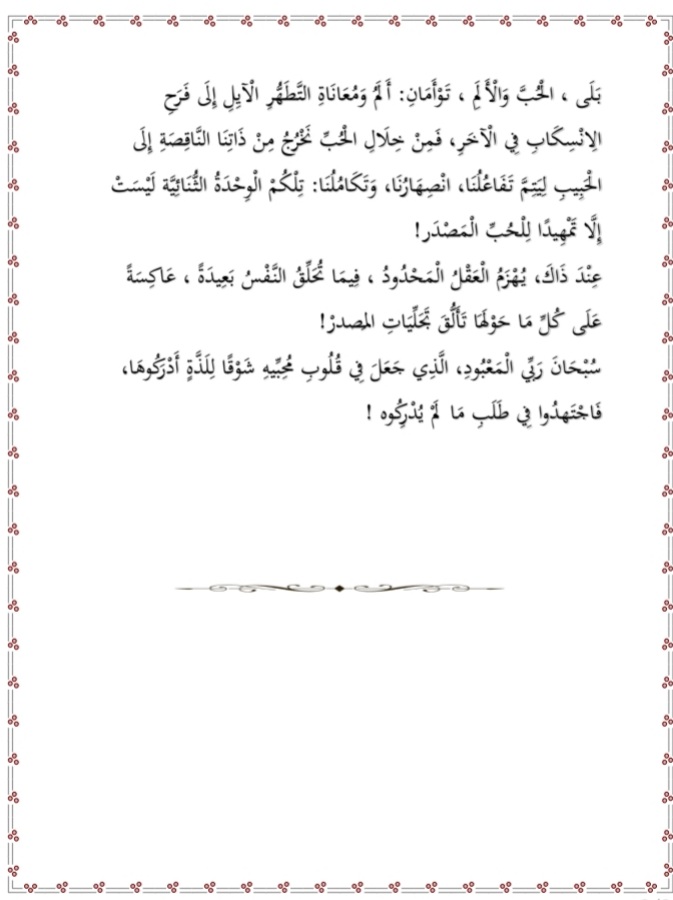 بَلَى ، الْحُبَّ وَالْأَلَمِ ، تَوْأَمَانِ: أَلَمُ وَمُعَانَاةِ التَّطَهُّرِ الْآيِلِ إِلَى فَرَحِ
الِانْسِكَابِ فِي الْآخَرِ، فَمِنْ خِلَالِ الْحُبِّ نَخْرُجُ مِنْ ذَاتِنَا النَّاقِصَةِ إِلَى
الْحَبِيبِ لِيَتِمَّ تَفَاعُلُنَا، انْصِهَارُنَا، وَتَكَامُلُنَا: تِلْكُمْ الْوِحْدَةُ الثُّنَائِيَّة لَيْسَتْ
إِلَّا تَمْهِيدًا لِلْحُبِّ الْمَصْدَر!
عِنْدَ ذَاكَ، يُهْزَمُ الْعَقْلُ الْمَحْدُودُ ، فِيمَا تُحَلِّقُ النَّفْسُ بَعِيدَةً ، عَاكِسَةً
عَلَى كُلِّ مَا حَوْلَهَا تَأَلُّقَ تَجَلِّيَاتِ المصدرْ!
سُبْحَانَ رَبِّي الْمَعْبُودِ، الَّذِي جَعَلَ فِي قُلُوبِ مُحِبِّيهِ شَوْقًا لِلَذَّةٍ أَدْرَكُوهَا،
فَاجْتَهدُوا فِي طَلَبِ مَا لَمْ يُدْرِكُوه !